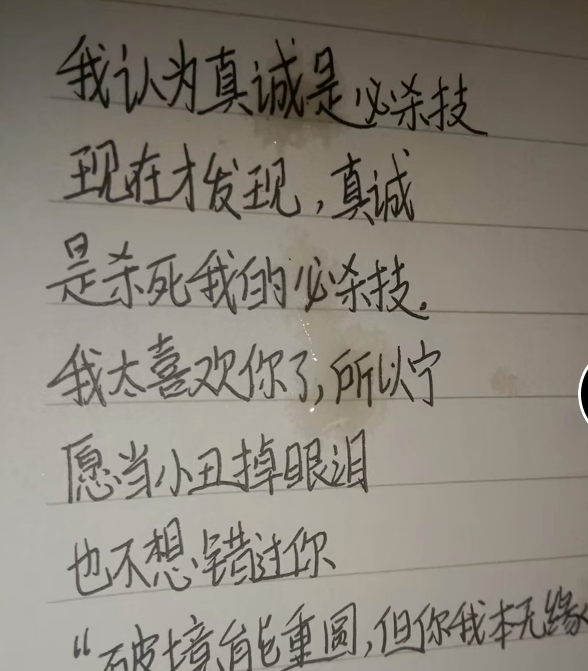 我认为真诚是必杀技
现在才发现，真诚
是杀死我的必杀技.
我太喜欢你了,所以宁
愿当小丑掉眼泪
也不想错过你
“破境能重圆,但你我本无缘